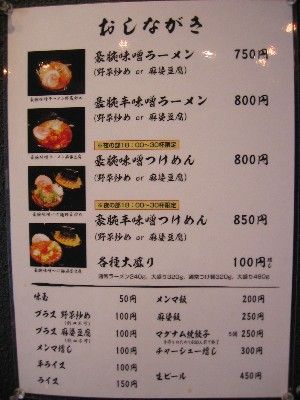 おしながき
豪腕味噌ラーメン 750円
(野菜炒め or 麻婆豆腐)
豪腕辛味噌ラーメン 800円
(野菜炒め or 麻婆豆腐)
※夜の部18:00~30杯限定
豪腕味噌つけめん 800円
(野菜炒め or 麻婆豆腐)
※夜の部18:00~30杯限定
豪腕辛味噌つけめん 850円
(野菜炒め or 麻婆豆腐)
各種大盛り 100円増し
味玉 50円
プラス 野菜炒め 100円
プラス 麻婆豆腐 100円
メンマ増し 100円
半ライス 100円
ライス 150円
メンマ皿 200円
麻婆飯 250円
マグナム焼餃子 300円
チャーシュー増し 300円
生ビール 450円